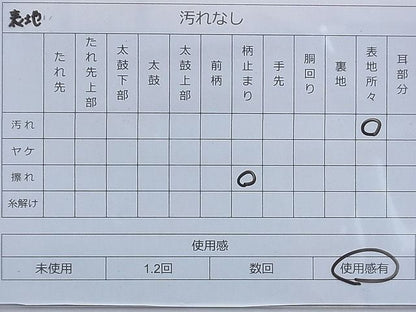 表地 汚れなし
たれ先 たれ先上部 太鼓下部 太鼓 太鼓上部 前柄 柄止まり 手先 胴回り 裏地 表地所々 耳部分
汚れ ○
ヤケ
擦れ ○
糸解け
使用感
未使用 1.2回 数回 使用感有